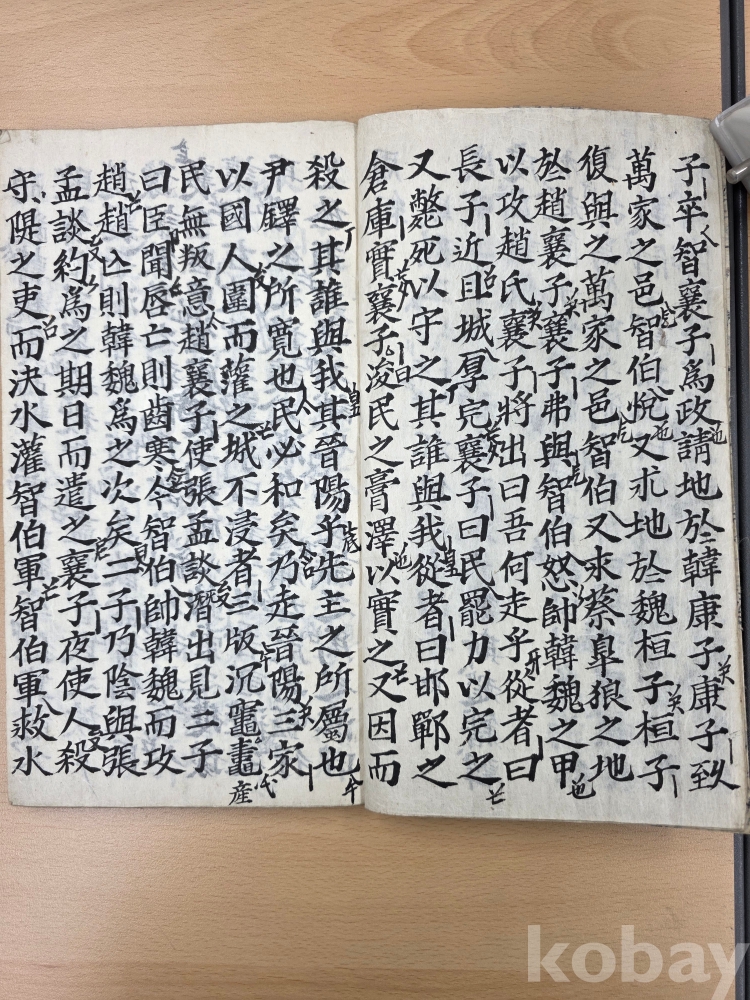 子卒智襄子爲政請地於韓康子康子致
萬家之邑智伯悅又求地於魏桓子桓子
復與之萬家之邑智伯又求蔡皐狼之地
於趙襄子襄子弗與智伯怒帥韓魏之甲
以攻趙氏襄子將出曰吾何走乎從者曰
長子近且城厚完襄子曰民罷力以完之
又斃死以守之其誰與我從者曰邯鄲之
倉庫實襄子曰浚民之膏澤以實之又因而
殺之其誰與我其晉陽乎先主之所屬也
尹鐸之所寬也民必和矣乃走晉陽三家
以國人圍而灌之城不浸者三版沉竈鼃産
民無叛意趙襄子使張孟談潛出見二子
曰臣聞唇亡則齒寒今智伯帥韓魏而攻
趙趙亾則韓魏爲之次矣二子乃陰與張
孟談約爲之期日而遣之襄子夜使人殺
守隄之吏而決水灌智伯軍智伯軍救水
kobay